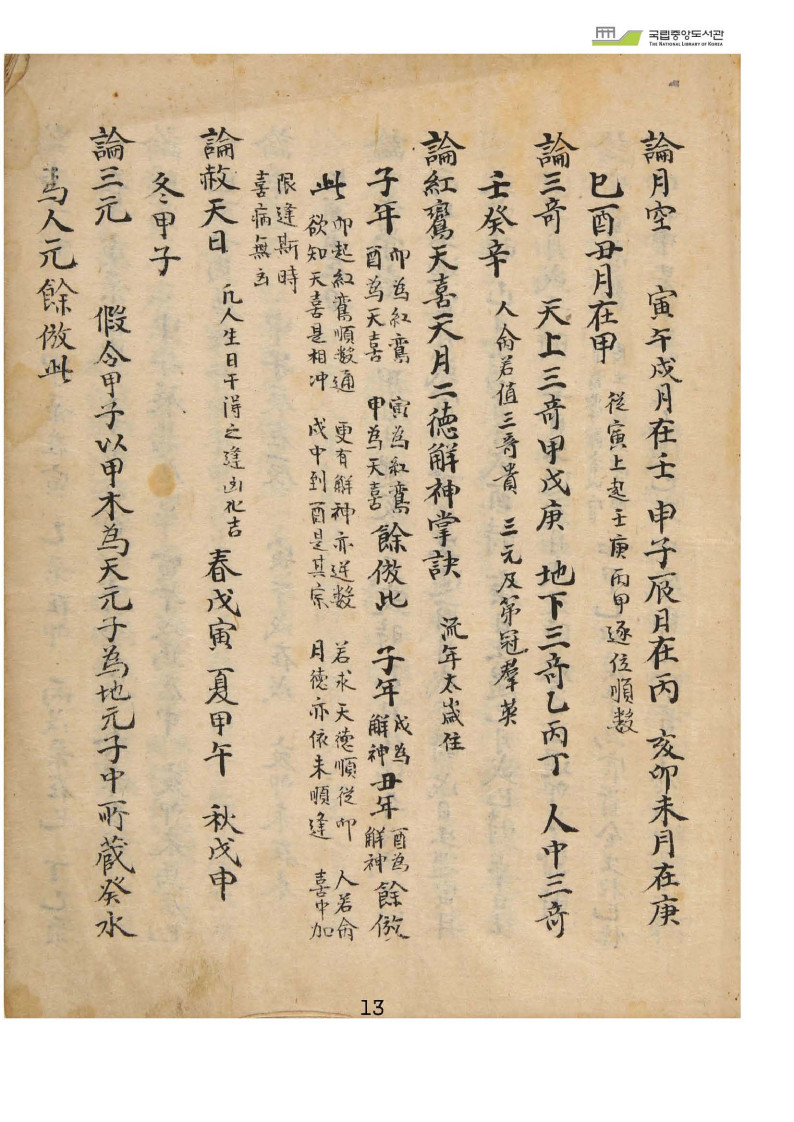 국립중앙도서관
THE NATIONAL LIBRARY OF KOREA
論月空 寅午戌月在壬 申子辰月在丙 亥卯未月在庚
巳酉丑月在甲 從寅上起壬庚丙甲逐位順数
論三竒 天上三竒甲戊庚 地下三竒乙丙丁 人中三竒
壬癸辛 人命若值三竒貴 三元及第冠羣英
論紅鸞天喜天月二德觧神掌訣 流年太歲住
子年 卯為紅鸞 酉為天喜 寅為紅鸞 申為天喜 餘倣此 子年 戌為觧神 丑年 酉為觧神 餘倣
此 卯起紅鸞順数通 欲知天喜是相冲 更有觧神亦逆数 戌中到酉是其宗 若求天德順從卯 月德亦依未順逢 人若命 喜中加
限逢斯時
喜病無凶
論赦天日 凢人生日干得之逢凶化吉 春戊寅 夏甲午 秋戊申
冬甲子
論三元 假令甲子以甲木為天元子為地元子中所蔵癸水
為人元餘倣此
13